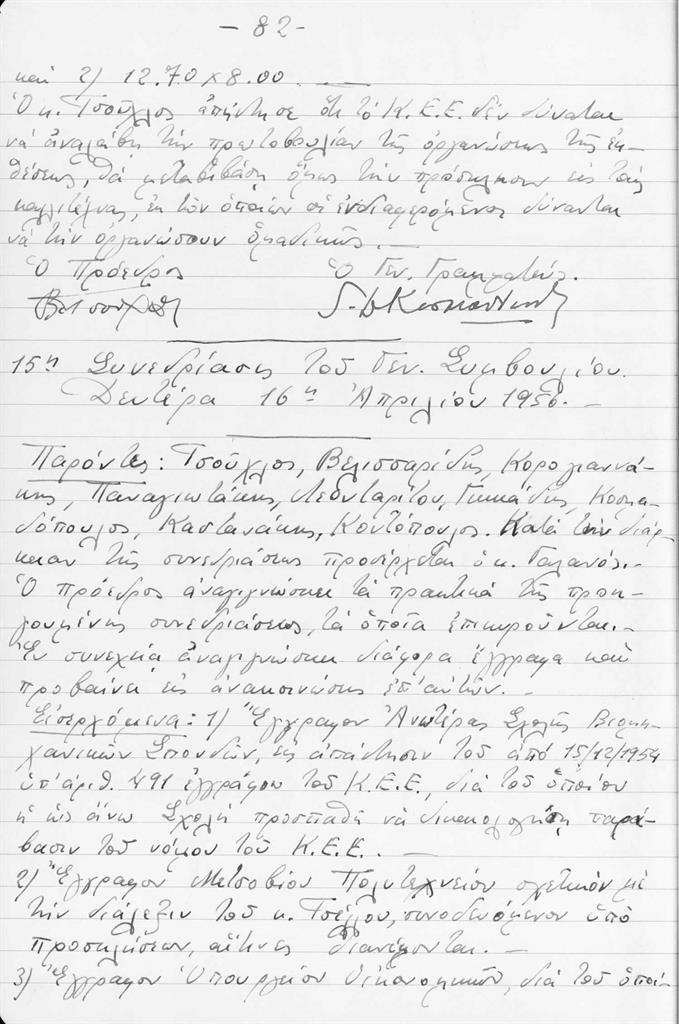 - 82 -
καὶ 2) 12.70 x 8.00. —
Ὁ κ. Τσοῦχλος ἀπήντησε ὅτι τὸ Κ.Ε.Ε. δὲν δύναται
νὰ ἀναλάβῃ τὴν πρωτοβουλίαν τῆς ὀργανώσεως τῆς ἐκ-
θέσεως, θὰ μεταβιβάσῃ ὅμως τὴν πρόσκλησιν εἰς τοὺς
καλλιτέχνας, ἐκ τῶν ὁποίων οἱ ἐνδιαφερόμενοι δύνανται
νὰ τὴν ὀργανώσουν ὁμαδικῶς. —
Ὁ Πρόεδρος Ὁ Γεν. Γραμματεύς.
15η Συνεδρίασις τοῦ Γεν. Συμβουλίου.
Δευτέρα 16η Ἀπριλίου 1956. —
Παρόντες: Τσοῦχλος, Βελισσαρίδης, Κορογιαννά-
κης, Παναγιωτάκης, Λεονταρίτου, Γικκάδης, Κοσμα-
δόπουλος, Καστανάκης, Κοντόπουλος. Κατὰ τὴν διάρ-
κειαν τῆς συνεδριάσεως προσέρχεται ὁ κ. Γαλανός. —
Ὁ πρόεδρος ἀναγιγνώσκει τὰ πρακτικὰ τῆς προη-
γουμένης συνεδριάσεως, τὰ ὁποῖα ἐπικυροῦνται. —
Ἐν συνεχείᾳ ἀναγιγνώσκει διάφορα ἔγγραφα καὶ
προβαίνει εἰς ἀνακοινώσεις ἐπ' αὐτῶν. —
Εἰσερχόμενα: 1) Ἔγγραφον Ἀνωτέρας Σχολῆς Βιομη-
χανικῶν Σπουδῶν, εἰς ἀπάντησιν τοῦ ἀπὸ 15/12/1954
ὑπ' ἀριθ. 491 ἐγγράφου τοῦ Κ.Ε.Ε., διὰ τοῦ ὁποίου
ἡ ὡς ἄνω Σχολὴ προσπαθῇ νὰ δικαιολογήσῃ παρά-
βασιν τοῦ νόμου τοῦ Κ.Ε.Ε. —
2) Ἔγγραφον Μετσοβίου Πολυτεχνείου σχετικὸν μὲ
τὴν διάλεξιν τοῦ κ. Τσέλλου, συνοδευόμενον ὑπὸ
προσκλήσεων, αἵτινες διανέμονται. —
3) Ἔγγραφον Ὑπουργείου Οἰκονομικῶν, διὰ τοῦ ὁποί-